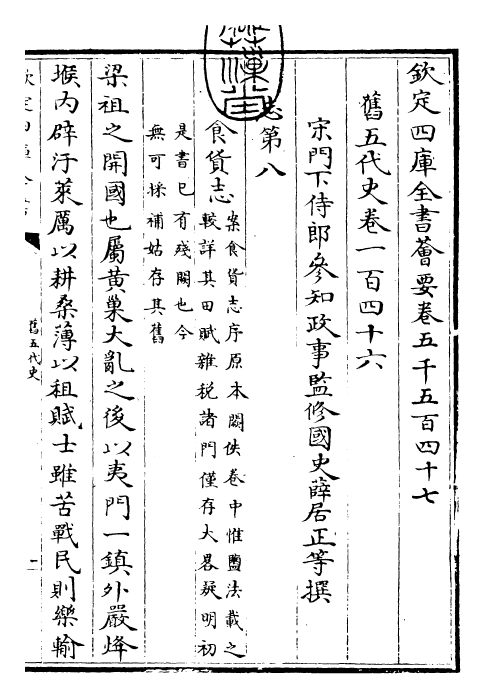 欽定四庫全書薈要卷五千五百四十七
舊五代史卷一百四十六
宋門下侍郎參知政事監修國史薛居正等撰
志第八
食貨志
案食貨志序原本闕佚卷中惟鹽法載之
較詳其田賦雜稅諸門僅存大畧疑明初
是書已有殘闕也今
無可採補姑存其舊
梁祖之開國也屬黃巢大亂之後以夷門一鎮外嚴烽
堠內辟汙萊厲以耕桑薄以租賦士雖苦戰民則樂輸
舊五代史